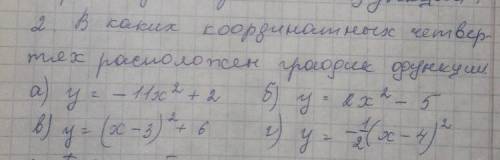 2. В каких координатных четвер-
тях расположен график функции
а) y = -11x² + 2 б) y = 2x² - 5
в) y = (x - 3)² + 6 г) y = -1/2(x - 4)²